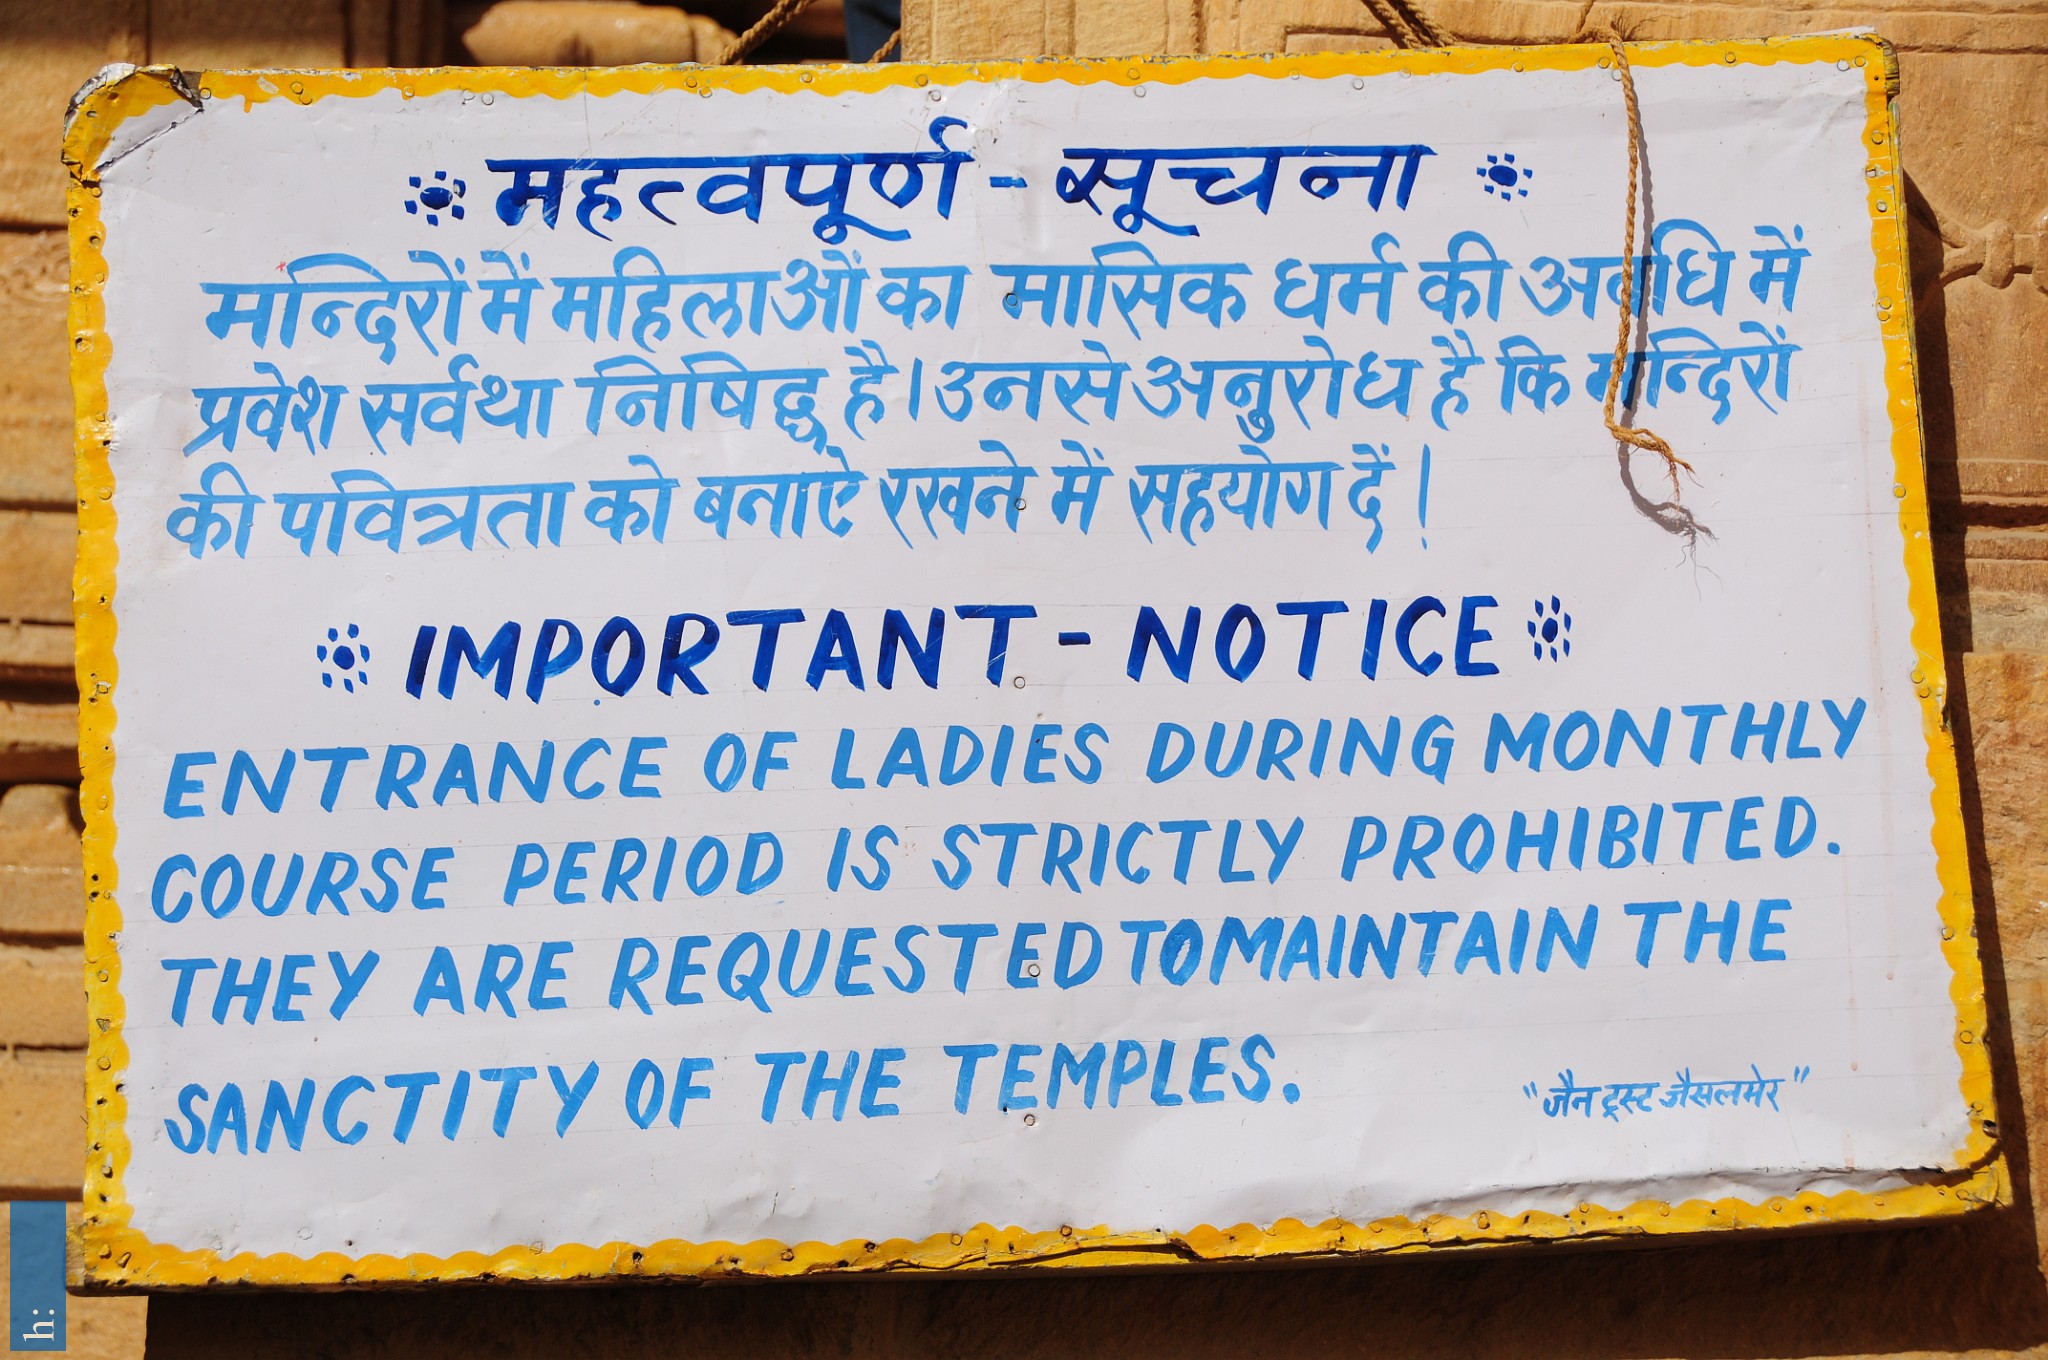 महत्वपूर्ण - सूचना
मन्दिरों में महिलाओं का मासिक धर्म की अवधि में
प्रवेश सर्वथा निषिद्ध है। उनसे अनुरोध है कि मन्दिरों
की पवित्रता को बनाऐ रखने में सहयोग दें !
IMPORTANT - NOTICE
ENTRANCE OF LADIES DURING MONTHLY
COURSE PERIOD IS STRICTLY PROHIBITED.
THEY ARE REQUESTED TO MAINTAIN THE
SANCTITY OF THE TEMPLES.
"जैन ट्रस्ट जैसलमेर"
h: